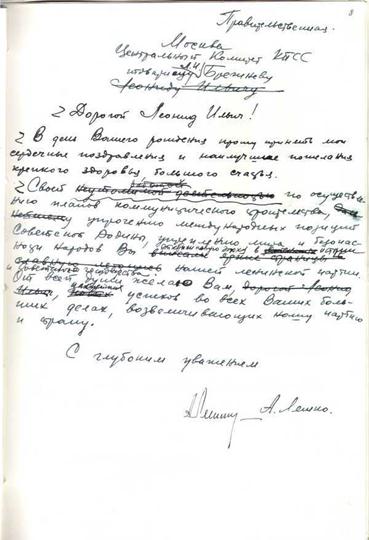 3
Правительственная
Москва
Центральный Комитет КПСС
товарищу Л И Брежневу
Леониду Ильичу
Дорогой Леонид Ильич!
В день Вашего рождения прошу принять мои
сердечные поздравления и наилучшие пожелания
крепкого здоровья большого счастья.
работой
Своей неутомимой деятельностью по осуществле
нию планов коммунистического строительства,
упрочению международных позиций
Советской Родины, укреплению мира и
народов Вы вписали яркие страницы
нашей ленинской партии.
и советского государства
От всей души желаю Вам, дорогой Леонид
Ильич, новых успехов во всех Ваших боль-
ших делах, возвеличивающих нашу партию
и страну.
С глубоким уважением